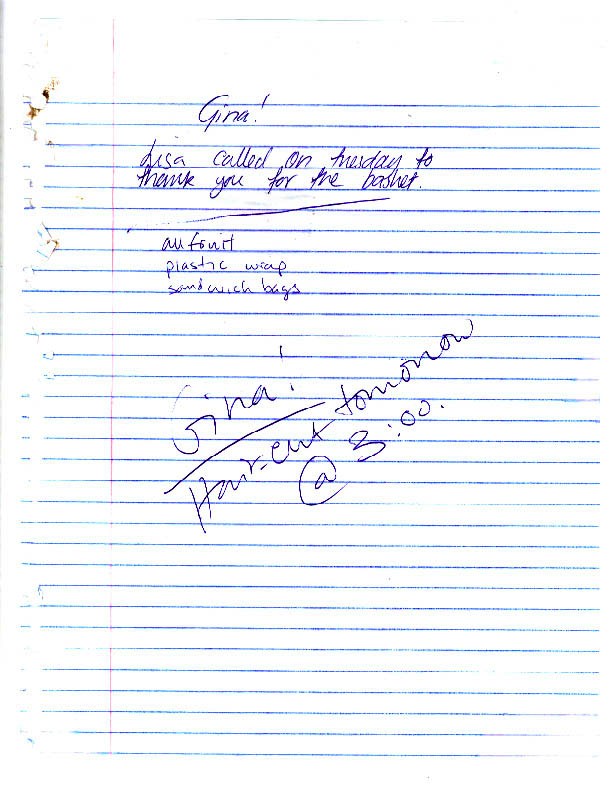 Gina!
Lisa called on tuesday to
thank you for the basket.
all fruit
plastic wrap
sandwich bags
Gina!
Hair-cut tomorrow
@ 3:00.